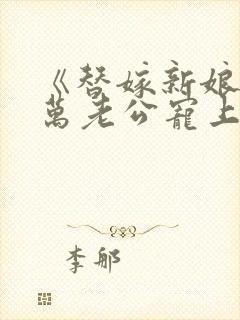 《替嫁新娘
萬老公寵上
李郍